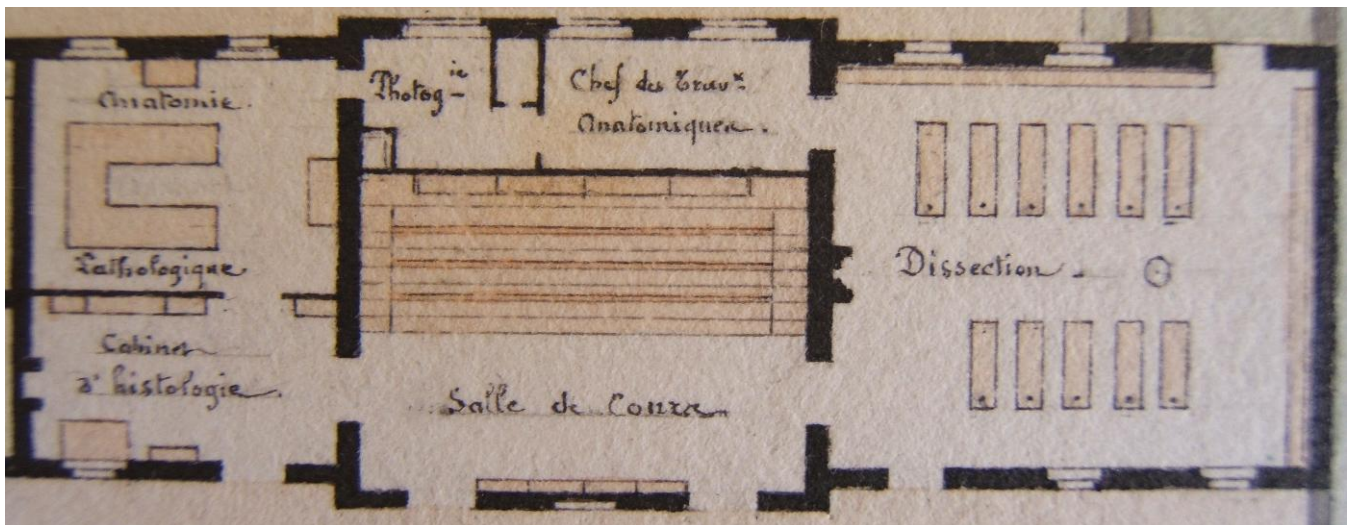 Anatomie.
Pathologique
Cabinet
d'histologie
Photog ie
Chef des Trav.x
Anatomiques.
Salle de Cours
Dissection